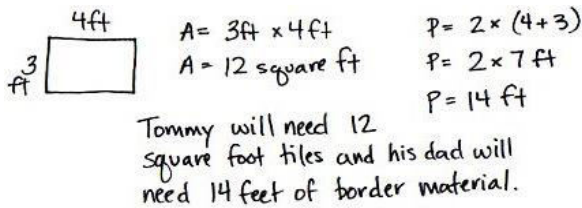 4ft
3
ft
A = 3ft × 4ft
A = 12 square ft
P = 2 × (4+3)
P = 2 × 7 ft
P = 14 ft
Tommy will need 12
square foot tiles and his dad will
need 14 feet of border material.